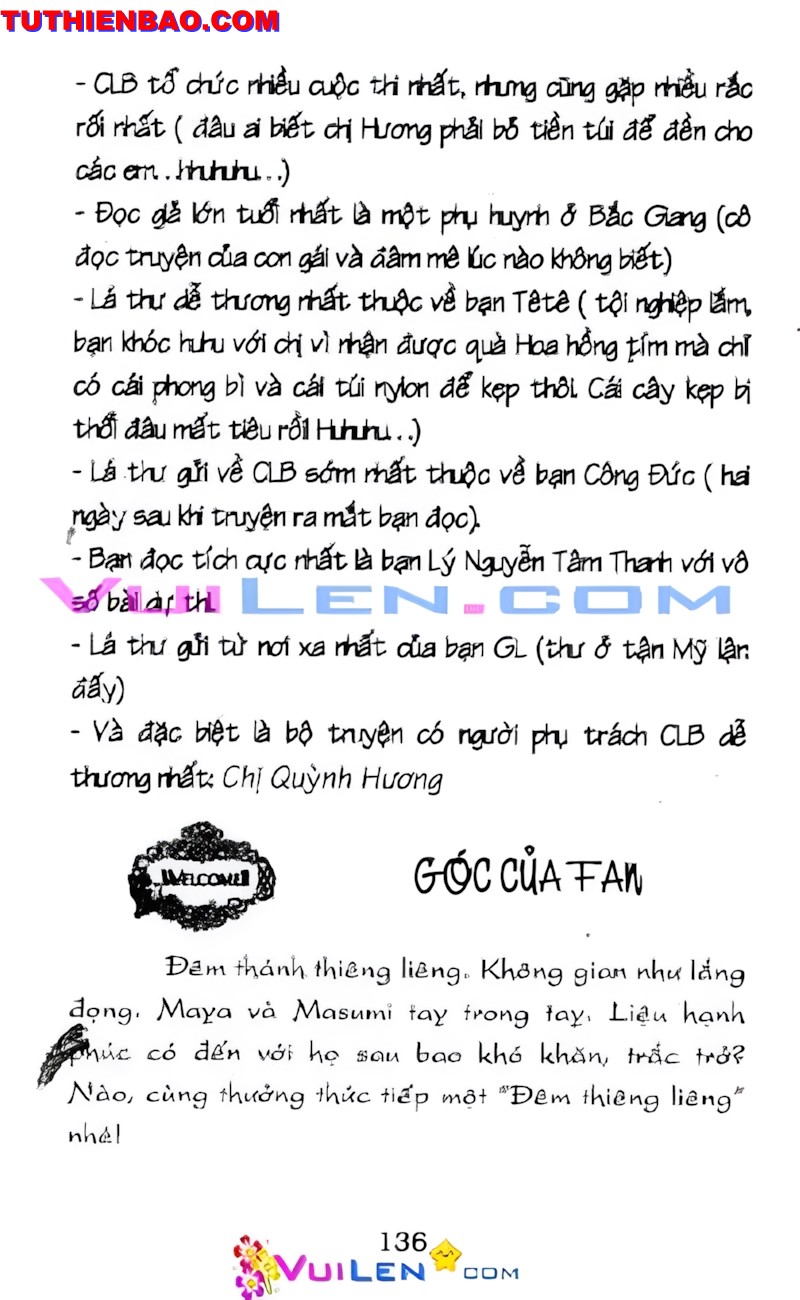 TUTHIENBAO.COM
- CLB tổ chức nhiều cuộc thi nhất, nhưng cũng gặp nhiều rắc
rối nhất ( đâu ai biết chị Hương phải bỏ tiền túi để đền cho
các em...Huhuhu...)
- Đọc giả lớn tuổi nhất là một phụ huynh ở Bắc Giang (cô
đọc truyện của con gái và đâm mê lúc nào không biết)
- Lá thư dễ thương nhất thuộc về bạn Têtê ( tội nghiệp lắm,
bạn khóc huhu với chị vì nhận được quà Hoa hồng tím mà chỉ
có cái phong bì và cái túi nylon để kẹp thôi. Cái cây kẹp bị
thổi đâu mất tiêu rồi! Huhuhu...)
- Lá thư gửi về CLB sớm nhất thuộc về bạn Công Đức ( hai
ngày sau khi truyện ra mắt bạn đọc).
- Bạn đọc tích cực nhất là bạn Lý Nguyễn Tâm Thanh với vô
VUILEN.COM
số bài dự thi.
- Lá thư gửi từ nơi xa nhất của bạn GL (thư ở tận Mỹ lận
đấy)
- Và đặc biệt là bộ truyện có người phụ trách CLB dễ
thương nhất: Chị Quỳnh Hương
WELCOME!!
GÓC CỦA FAN
Đêm thánh thiêng liêng. Không gian như lắng
đọng. Maya và Masumi tay trong tay. Liệu hạnh
phúc có đến với họ sau bao khó khăn, trắc trở?
Nào, cùng thưởng thức tiếp một "Đêm thiêng liêng"
nhé!
136
VUILEN COM